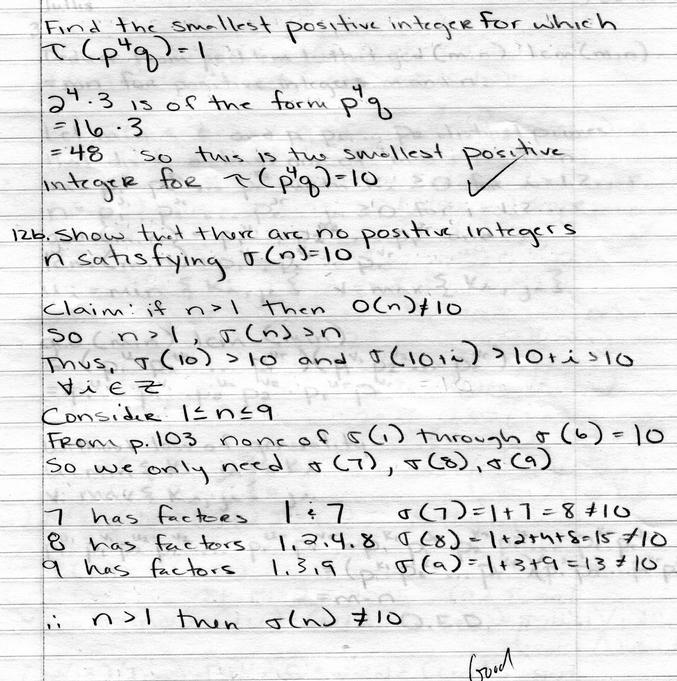 Find the smallest positive integer for which
τ(p⁴q)=1
2⁴·3 is of the form p⁴q
=16·3
=48 so this is the smallest positive
integer for τ(p⁴q)=10
12b. Show that there are no positive integers
n satisfying σ(n)=10
Claim: if n>1 then O(n)≠10
So n>1, σ(n)>n
Thus, σ(10)>10 and σ(10+i)>10+i>10
∀i∈Z
Consider 1≤n≤9
From p.103 none of σ(1) through σ(6)=10
So we only need σ(7), σ(8), σ(9)
7 has factors 1 & 7 σ(7)=1+7=8≠10
8 has factors 1,2,4,8 σ(8)=1+2+4+8=15≠10
9 has factors 1,3,9 σ(9)=1+3+9=13≠10
∴ n>1 then σ(n)≠10
Good